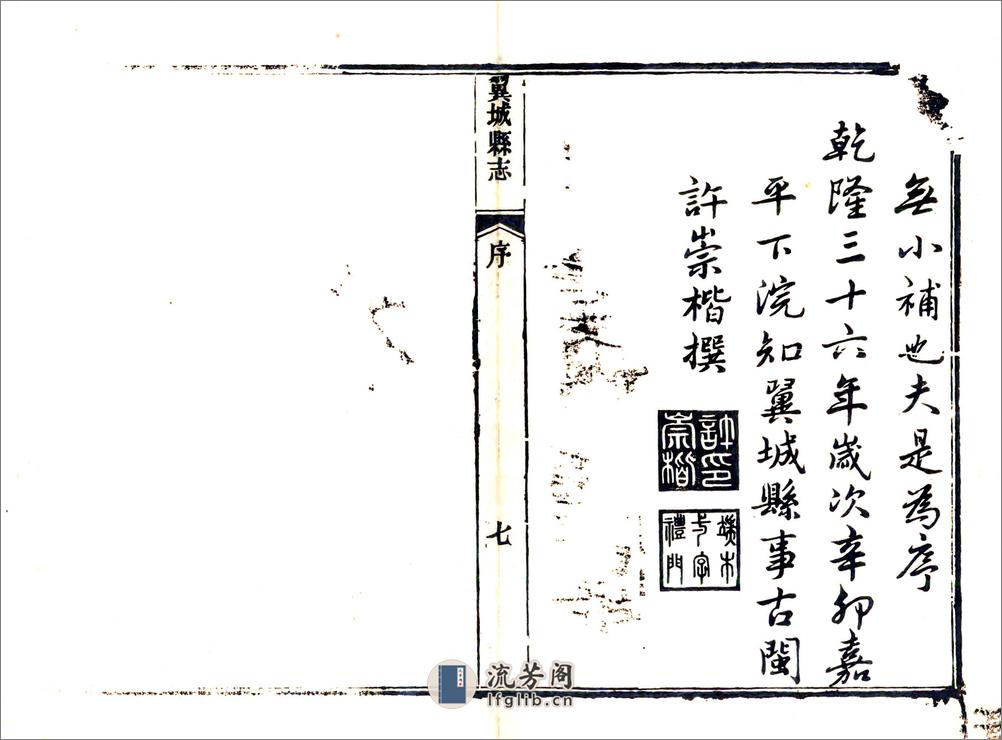 無小補也夫是為序
乾隆三十六年歲次辛卯嘉
平下浣知翼城縣事古閩
許崇楷撰
許印
崇楷
字
禮門
翼城縣志
序
七
流芳阁
lfglib.cn